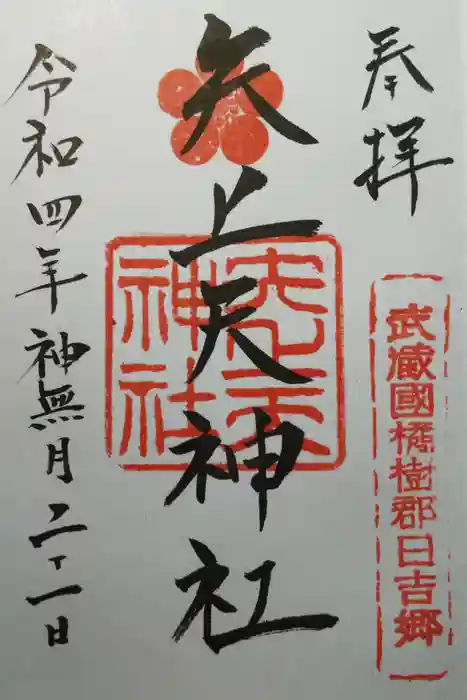 奉拝
武蔵國橘樹郡日吉郷
矢上天神社
矢上天
神社
令和四年神無月二十一日